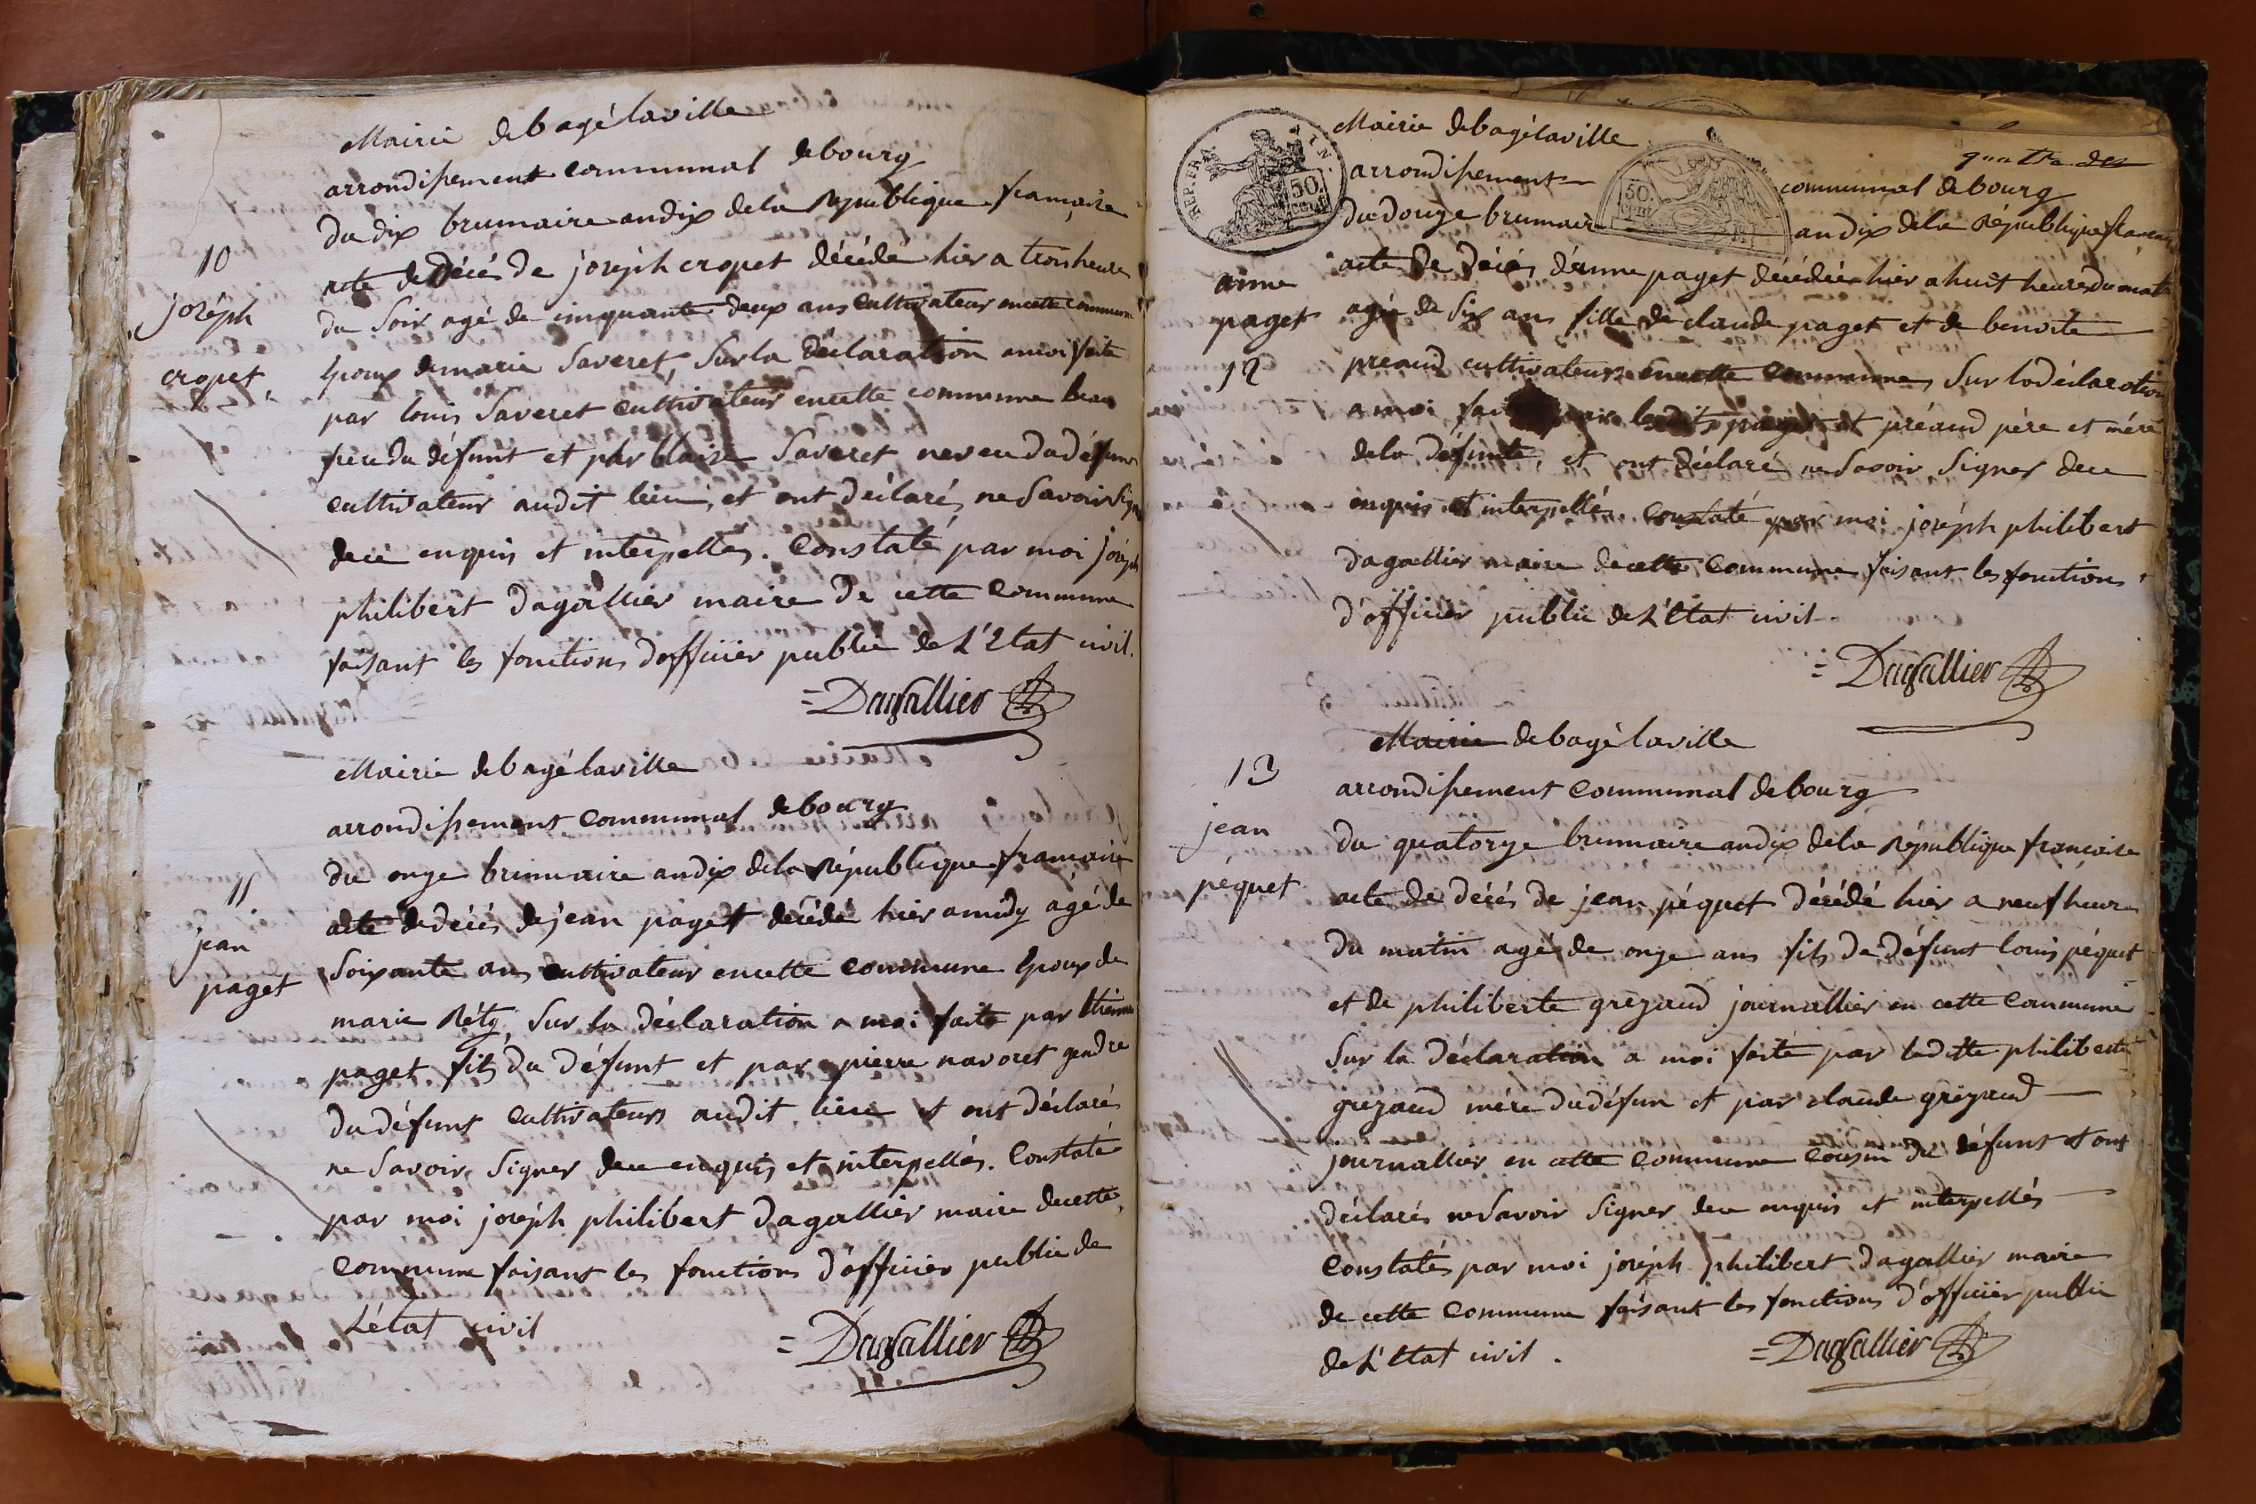 Mairie de bagé laville
arrondissement communal de bourg
du dix brumaire an dix de la République française
10
joséph
cropet
acte de décé de joséph cropet décédé hier a trois heures
du soir agé de cinquante deux ans cultivateur en cette commune
époux de marie Saveret, sur la déclaration a moi faite
par louis Saveret cultivateur en cette commune beau
frere du défunt et par blaise Saveret neveu du défunt
cultivateur audit lieu, et ont déclarés ne savoir signer
de ce enquis et interpellés. Constaté par moi joséph
philibert dagallier maire de cette commune
faisant les fonctions d'officier public de L'Etat civil.
=Dagallier
Mairie de bagé laville
arrondissement communal de bourg
du onze brumaire an dix de la République française
11
jean
paget
acte de décés de jean paget décédé hier a midy agé de
soixante ans cultivateur en cette commune époux de
marie Réty, sur la déclaration a moi faite par étienne
paget fils du défunt et par pierre navoret gendre
du défunt cultivateurs audit lieu et ont déclarés
ne savoir signer de ce enquis et interpellés. Constaté
par moi joséph philibert dagallier maire de cette
commune faisant les fonctions d'officier public de
L'état civil
=Dagallier
quatre des
Mairie de bagé laville
arrondissement communal de bourg
REP. FRA.
50
50
du douze brumaire an dix de la République française
anne
paget
12
acte de décés d'anne paget décédée hier a huit heures du matin
agée de six ans fille de claude paget et de benoite
preaud cultivateurs en cette commune, sur la déclaration
a moi faite par lesdits paget et préaud pére et mére
de la défunte, et ont déclaré ne savoir signer de ce
enquis et interpellés. Constaté par moi joséph philibert
dagallier maire de cette commune faisant les fonctions
d'officier public de L'Etat civil.
=Dagallier
Mairie de bagé laville
arrondissement communal de bourg
du quatorze brumaire an dix de la République française
13
jean
péquet
acte de décés de jean péquet décédé hier a neuf heures
du matin agé de onze ans fils de défunt louis péquet
et de philiberte grézaud journallier en cette commune
sur la déclaration a moi faite par laditte philiberte
grezaud mére du défun et par claude grézaud
journallier en cette commune cousin du défunt et ont
déclarés ne savoir signer de ce enquis et interpellés
Constatés par moi joséph philibert dagallier maire
de cette commune faisant les fonctions d'officier public
de L'Etat civil.
=Dagallier